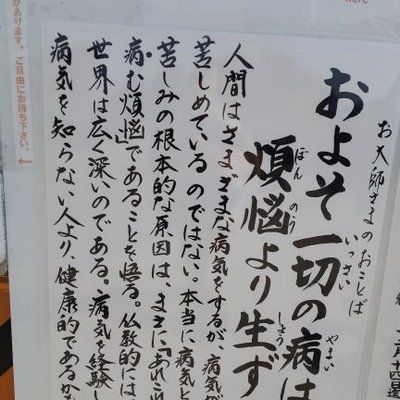 here
お大師さまのおことば
およそ一切の病は
いっさい
やまい
煩悩より生ず
ぼんのう
しょう
人間はさまざまな病気をするが、病気が
苦しめているのではない。本当に、病気と
苦しみの根本的な原因は、まさに「あれこれ
病む煩悩」であることを悟る。仏教的には
世界は広く深いのである。病気を経験し
病気を知らない人より、健康的であるか
があります。ご自由にお持ち下さい。